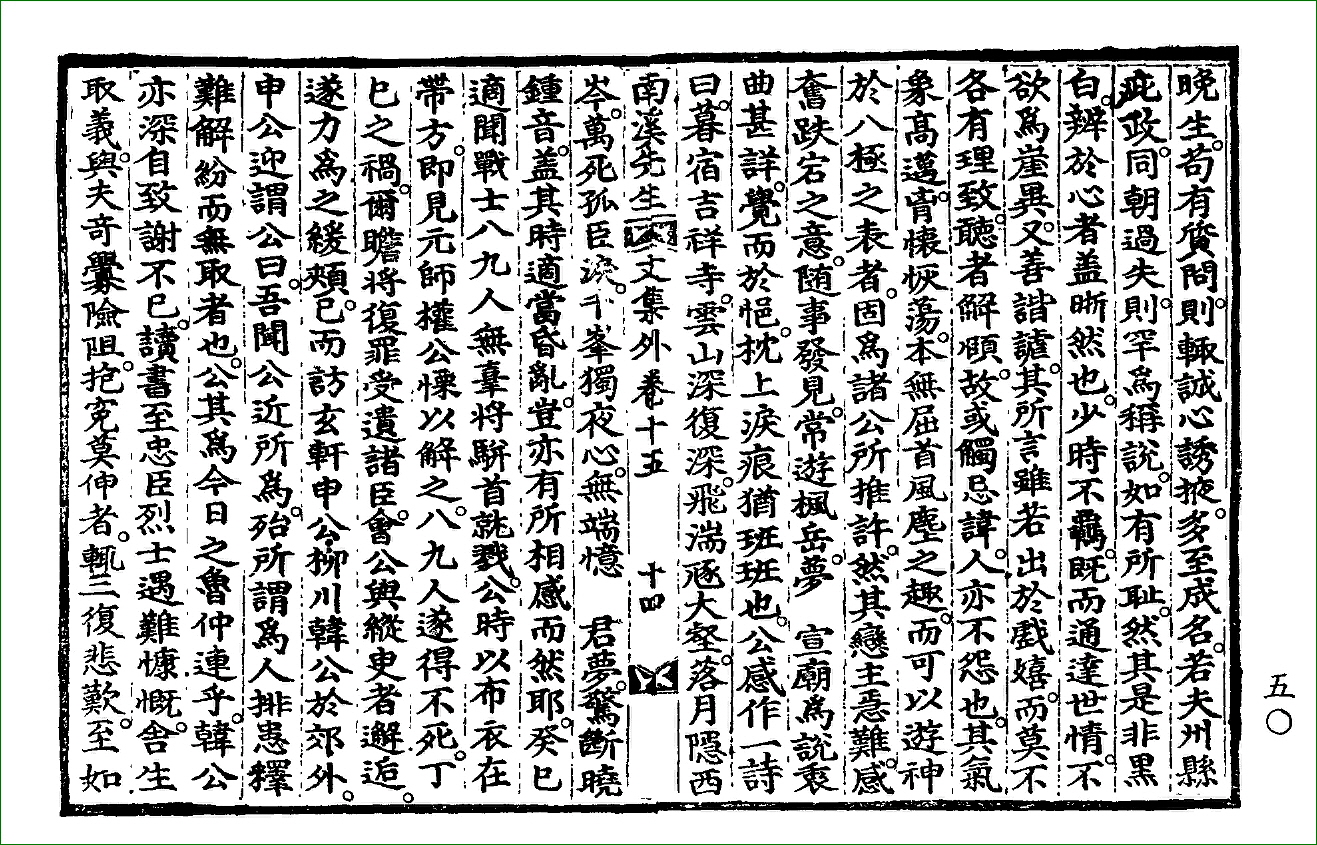 晩生。苟有質問則。輙誠心誘掖。多至成名。若夫州縣
疵政。同朝過失則。罕爲稱說。如有所耻。然其是非黑
白。辨於心者盖晣然也。少時不羈。旣而通達世情。不
欲爲崖異。又善諧謔。其所言雖若出於戱嬉。而莫不
各有理致。聽者解頤。故或觸忌諱。人亦不怨也。其氣
象高邁。胷懷恢蕩。本無屈首風塵之趣。而可以遊神
於八極之表者。因爲諸公所推許。然其戀主惹難感
奮跌宕之意。随事發見。常遊楓岳。夢 宣廟爲說衷
曲甚詳。覺而於悒。枕上淚痕猶班班也。公感作一詩
曰。暮宿吉祥寺。雲山深復深。飛湍豗大壑。落月隱西
南溪先生文集外 卷十五 十四
岑。萬死孤臣淚。千峯獨夜心。無端憶 君夢。驚斷曉
鍾音。盖其時適當昏亂。豈亦有所相感而然耶。癸巳
適聞戰士八九人無辜將騈首就戮。公時以布衣在
帶方。卽見元師權公慄以解之。八九人遂得不死。丁
巳之禍。爾瞻將復罪受遺諸臣。會公與縱臾者邂逅。
遂力爲之緩頰。已而訪玄軒申公柳川韓公於郊外。
申公迎謂公曰。吾聞公近所爲。殆所謂爲人排患釋
難解紛而無取者也。公其爲今日之魯仲連乎。韓公
亦深自致謝不已。讀書至忠臣烈士遇難慷慨。舍生
取義。與夫奇釁險阻。抱寃莫伸者。輒三復悲歎。至如
五〇